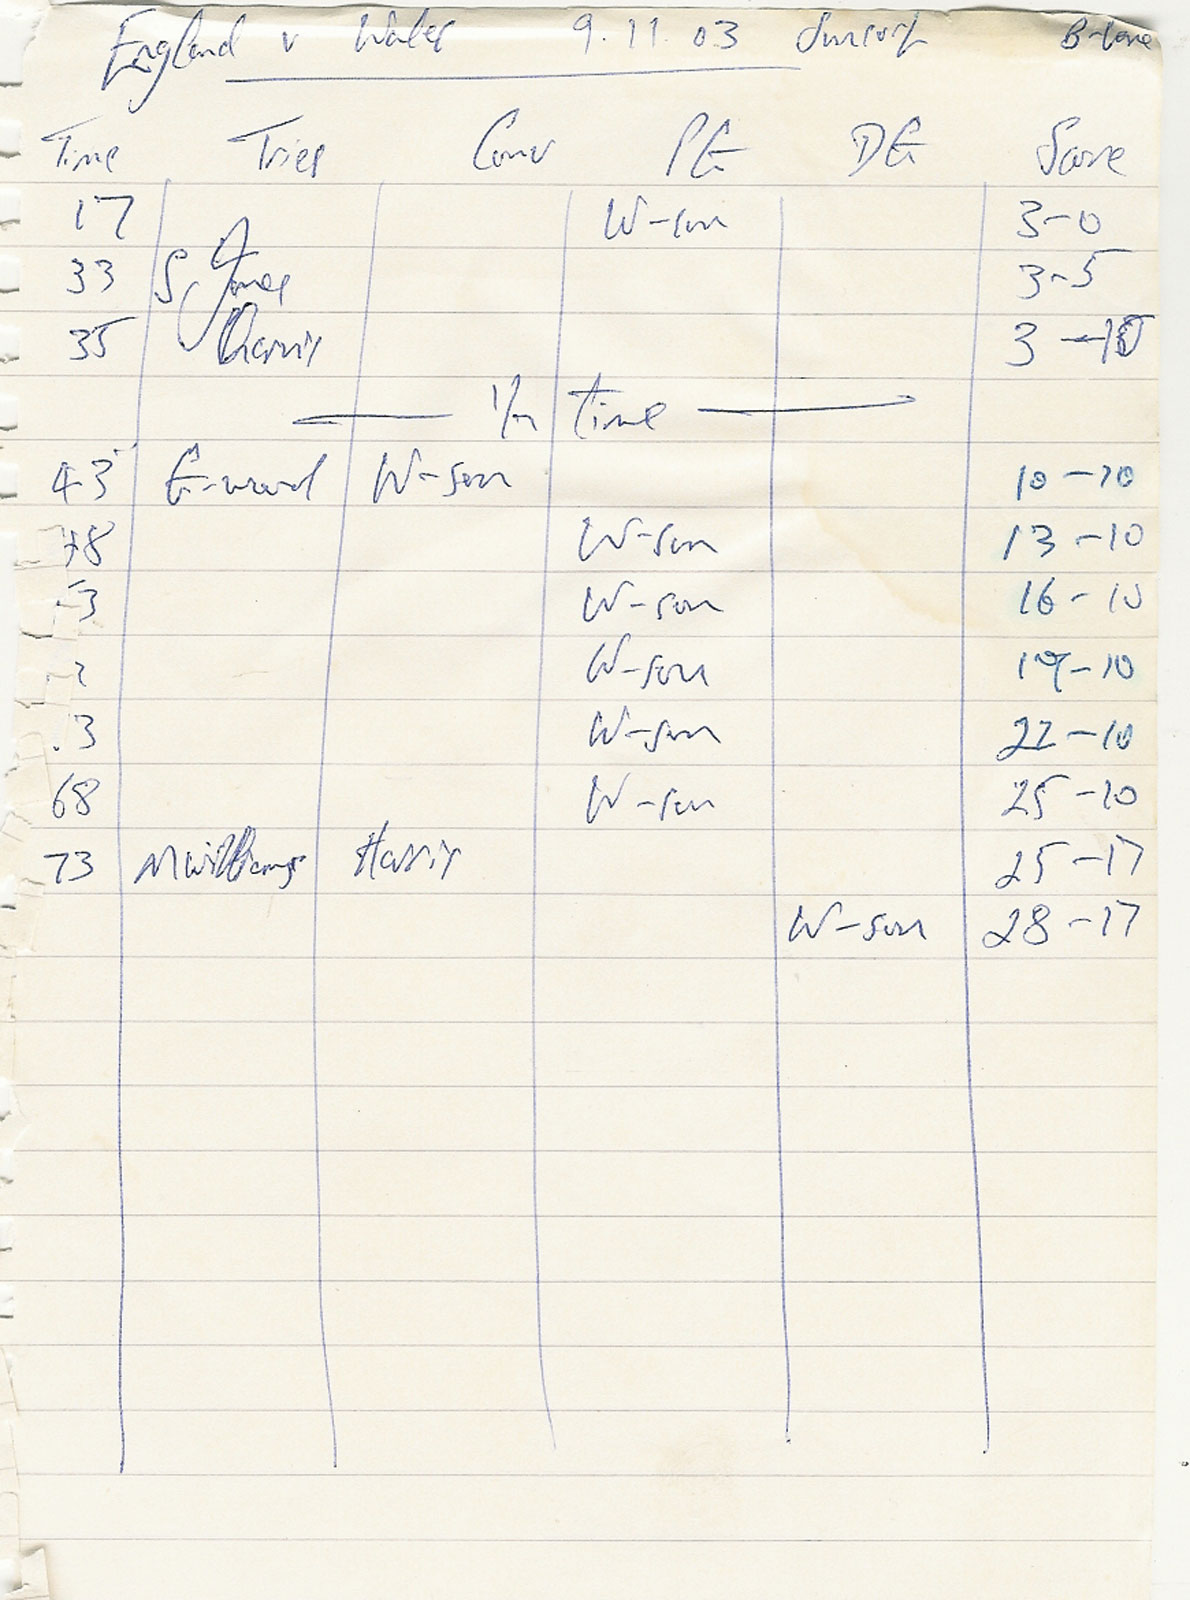 England v Wales 9.11.03 Suncorp B-bane
Time Tries Conv PG DG Score
17 W-son 3-0
33 S Jones 3-5
35 Charvis 3-10
1/2 Time
43 G-wood W-son 10-10
48 W-son 13-10
3 W-son 16-10
W-son 19-10
3 W-son 22-10
68 W-son 25-10
73 M Williams Harris 25-17
W-son 28-17